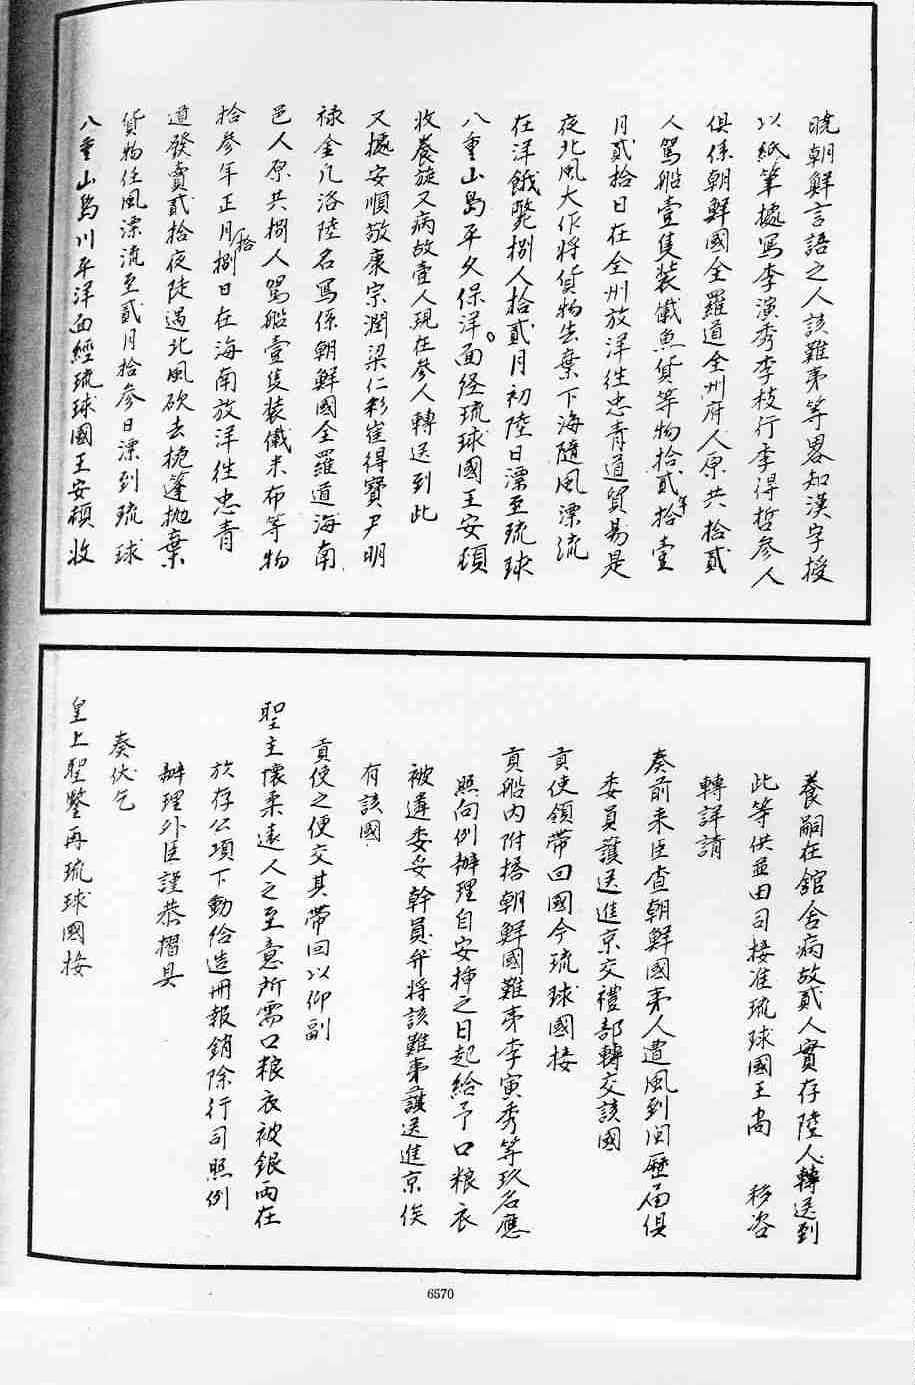 曉朝鮮言語之人該難苐等畧知漢字授
以紙筆據寫李演秀李枝行李得哲參人
俱係朝鮮國全羅道全州府人原共拾貳
人駕船壹隻裝儎魚貨等物拾貳年拾壹
月貳拾日在全州放洋徃忠青道貿易是
夜北風大作將貨物去棄下海隨風漂流
在洋餓斃捌人拾貳月初陸日漂至琉球
八重山島平久保洋面经琉球國王安頓
收養旋又病故壹人現在參人轉送到此
又據安順敬康宗潤梁仁彩崔得寶尹明
祿金凡洛陸名寫係朝鮮國全羅道海南
邑人原共捌人駕船壹隻裝儎米布等物
拾參年正月拾捌日在海南放洋徃忠青
道發賣貳拾夜陡遇北風砍去桅篷抛棄
貨物任風漂流至貳月拾參日漂到琉球
八重山島川平洋面經琉球國王安頓收
養嗣在館舍病故貳人實存陸人轉送到
此等供並由司接准琉球國王尚　移咨
轉詳請
奏前来臣查朝鮮國苐人遭風到闽歷届俱
委員護送進京交禮部轉交該國
貢使領帶回國今琉球國接
貢船内附搭朝鮮國難苐李寅秀等玖名應
照向例辦理自安揷之日起給予口粮衣
被遴委妥幹員弁将該難苐護送進京俟
有該國
貢使之便交其帶回以仰副
聖主懷柔遠人之至意所需口粮衣被銀両在
於存公項下動给造册報銷除行司照例
辦理外臣謹恭摺具
奏伏乞
皇上聖鑒再琉球國接
6570